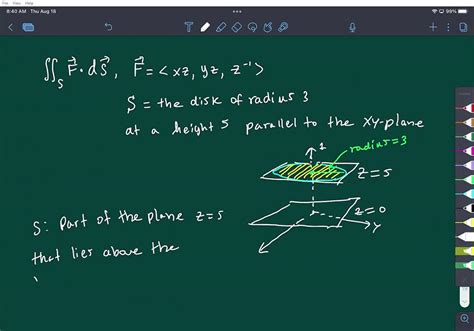 File View Help
8:40 AM Thu Aug 18
99%
∬_S F⃗ · dS⃗ , F⃗ = < xz, yz, z⁻¹ >
S = the disk of radius 3
at a height 5 parallel to the xy-plane
1
radius=3
z=5
z=0
y
S: Part of the plane z=5
that lies above the